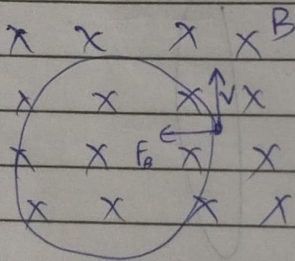 x x x x B
x x x V x
x x F_B x x
x x x x